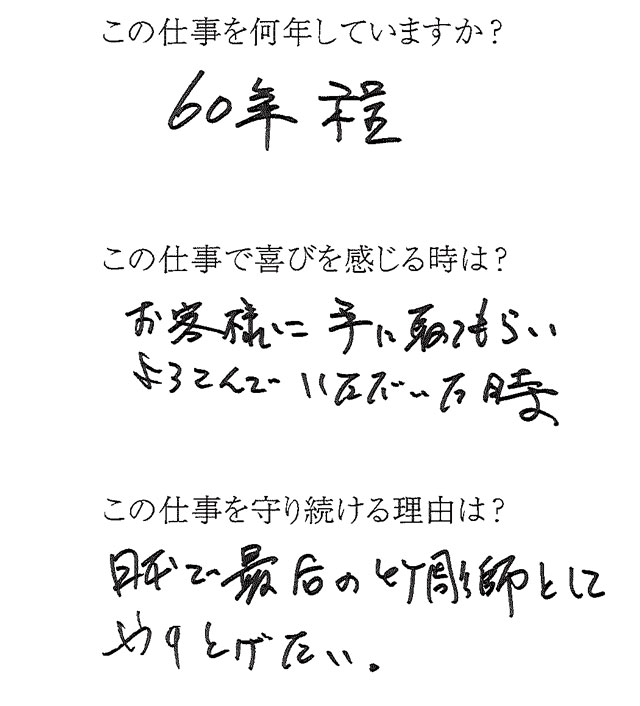 この仕事を何年していますか？
60年 程
この仕事で喜びを感じる時は？
お客様に 手に取ってもらい
よろこんで いただいた時
この仕事を守り続ける理由は？
日本で最后の竹彫師として
やりとげたい。